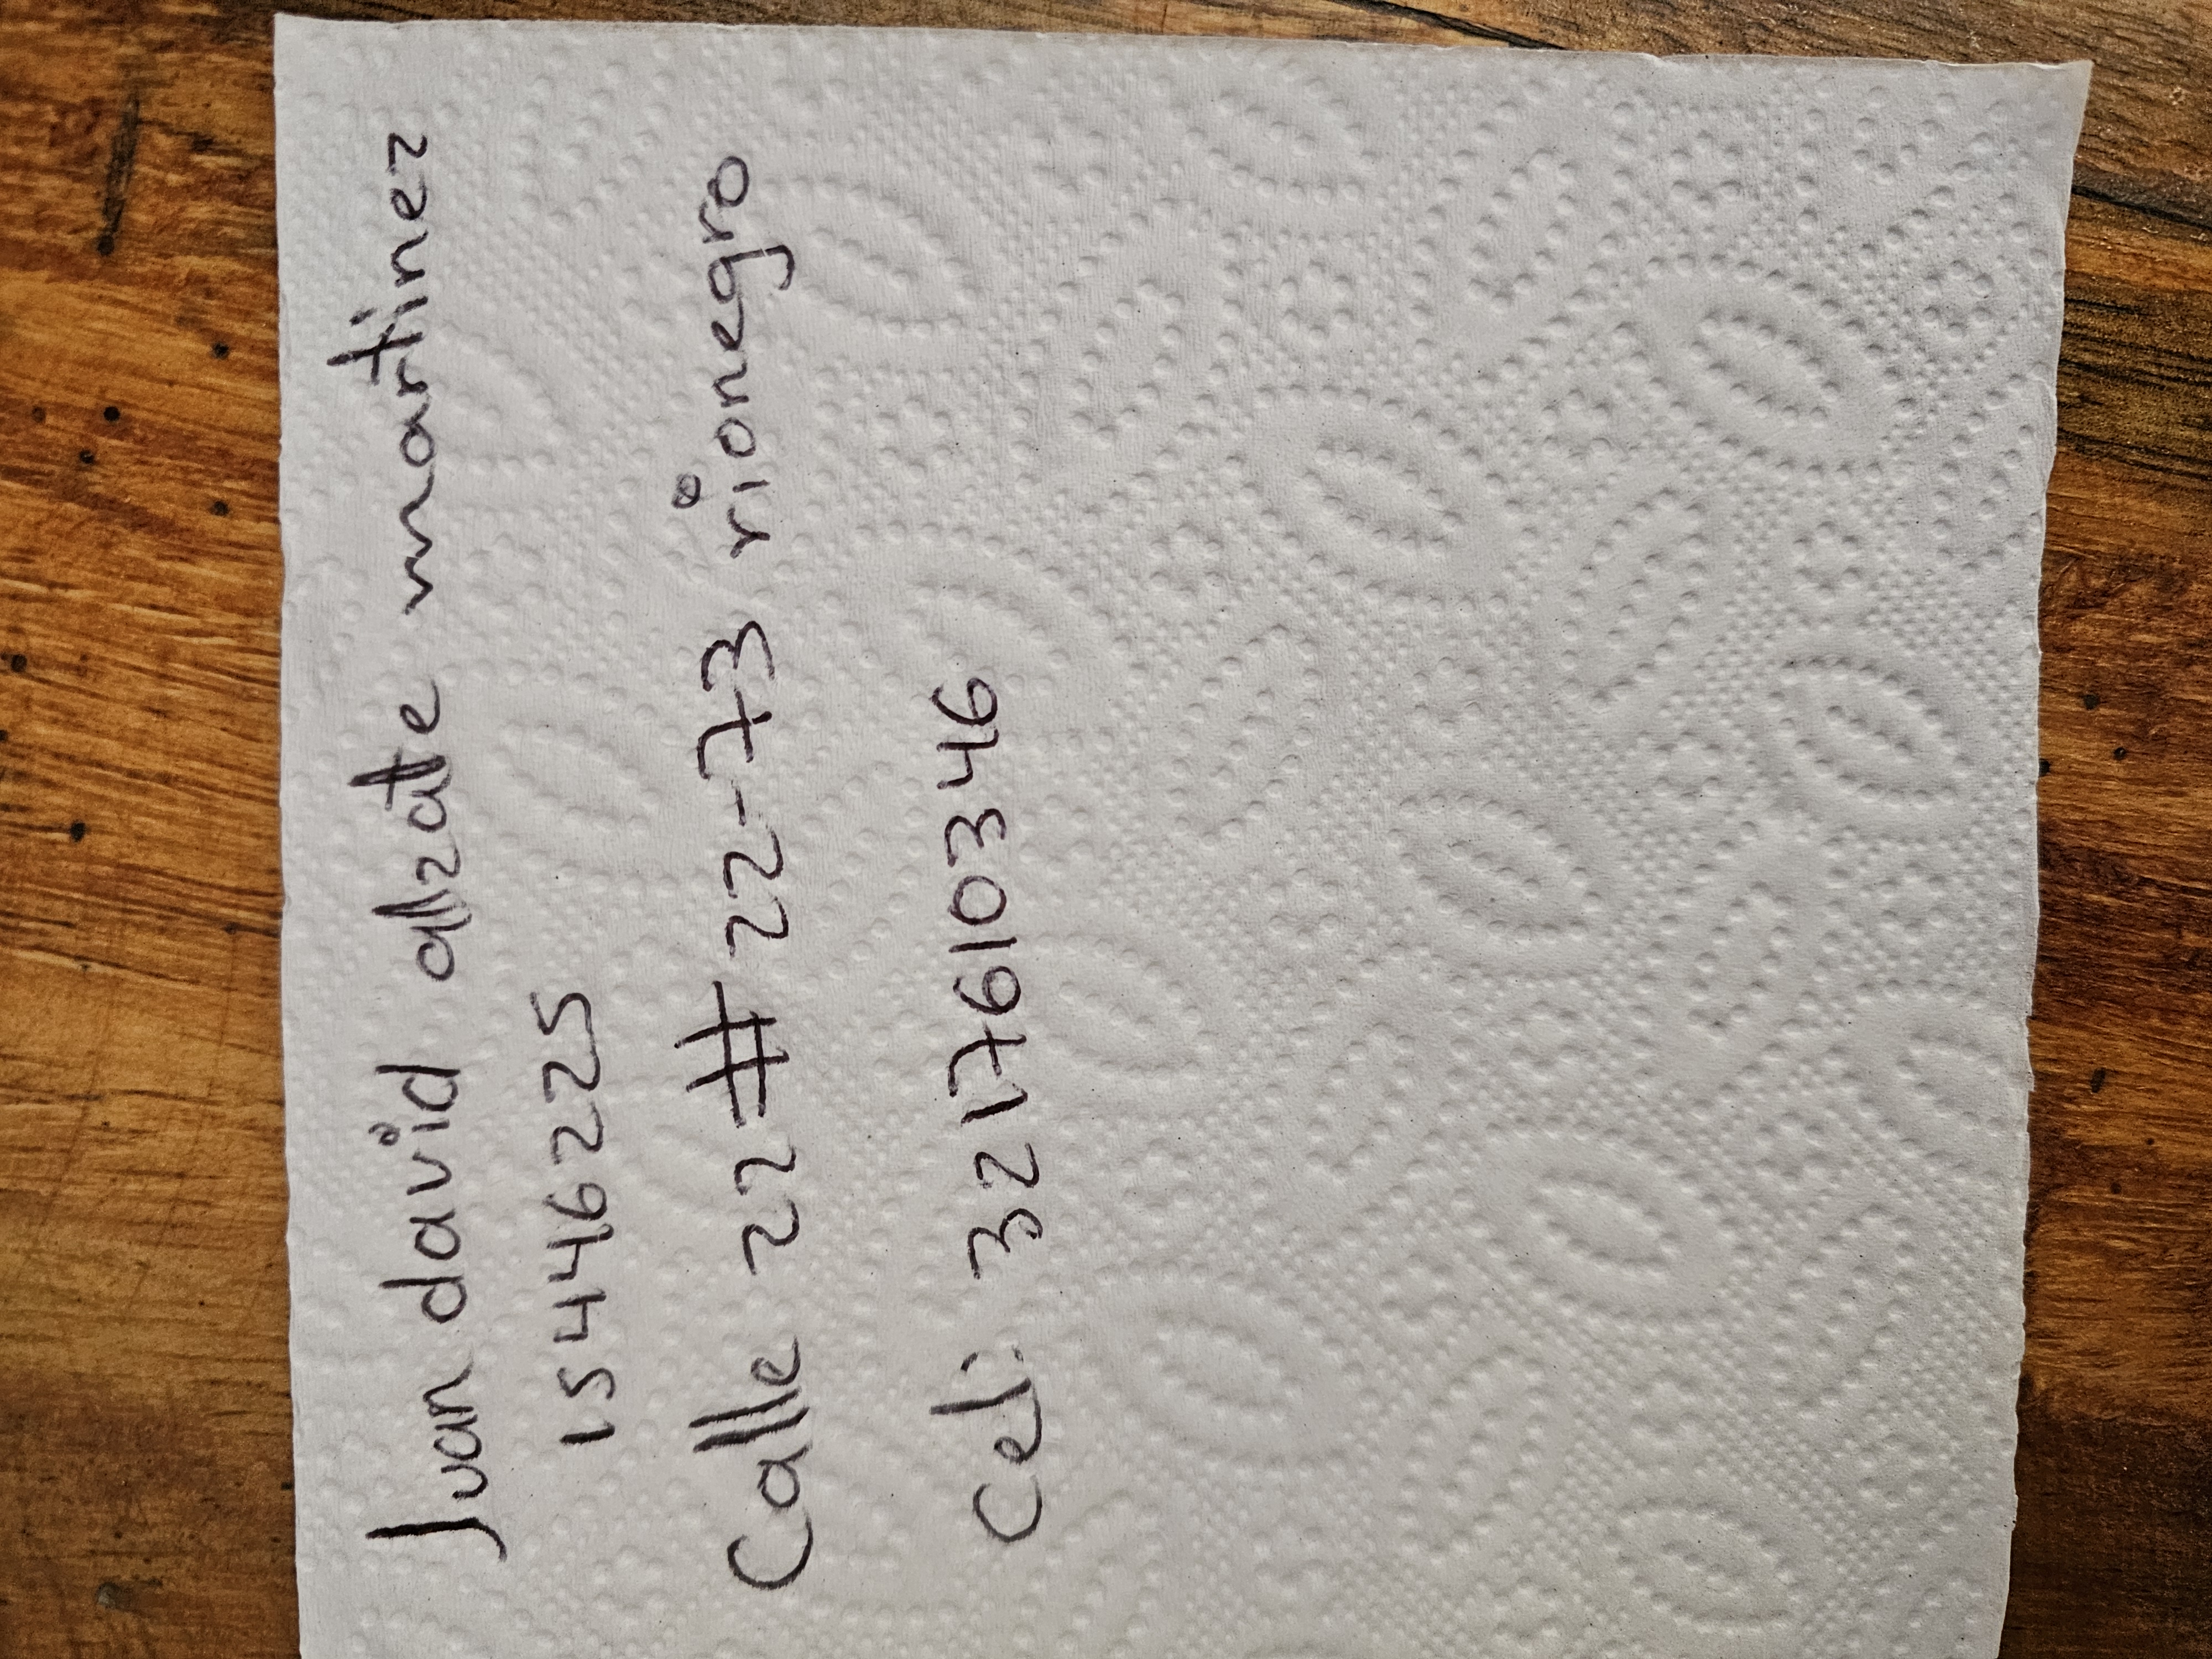 Juan david alzate martinez
15446225
Calle 22 # 22-73 rionegro
Cel: 3217610346